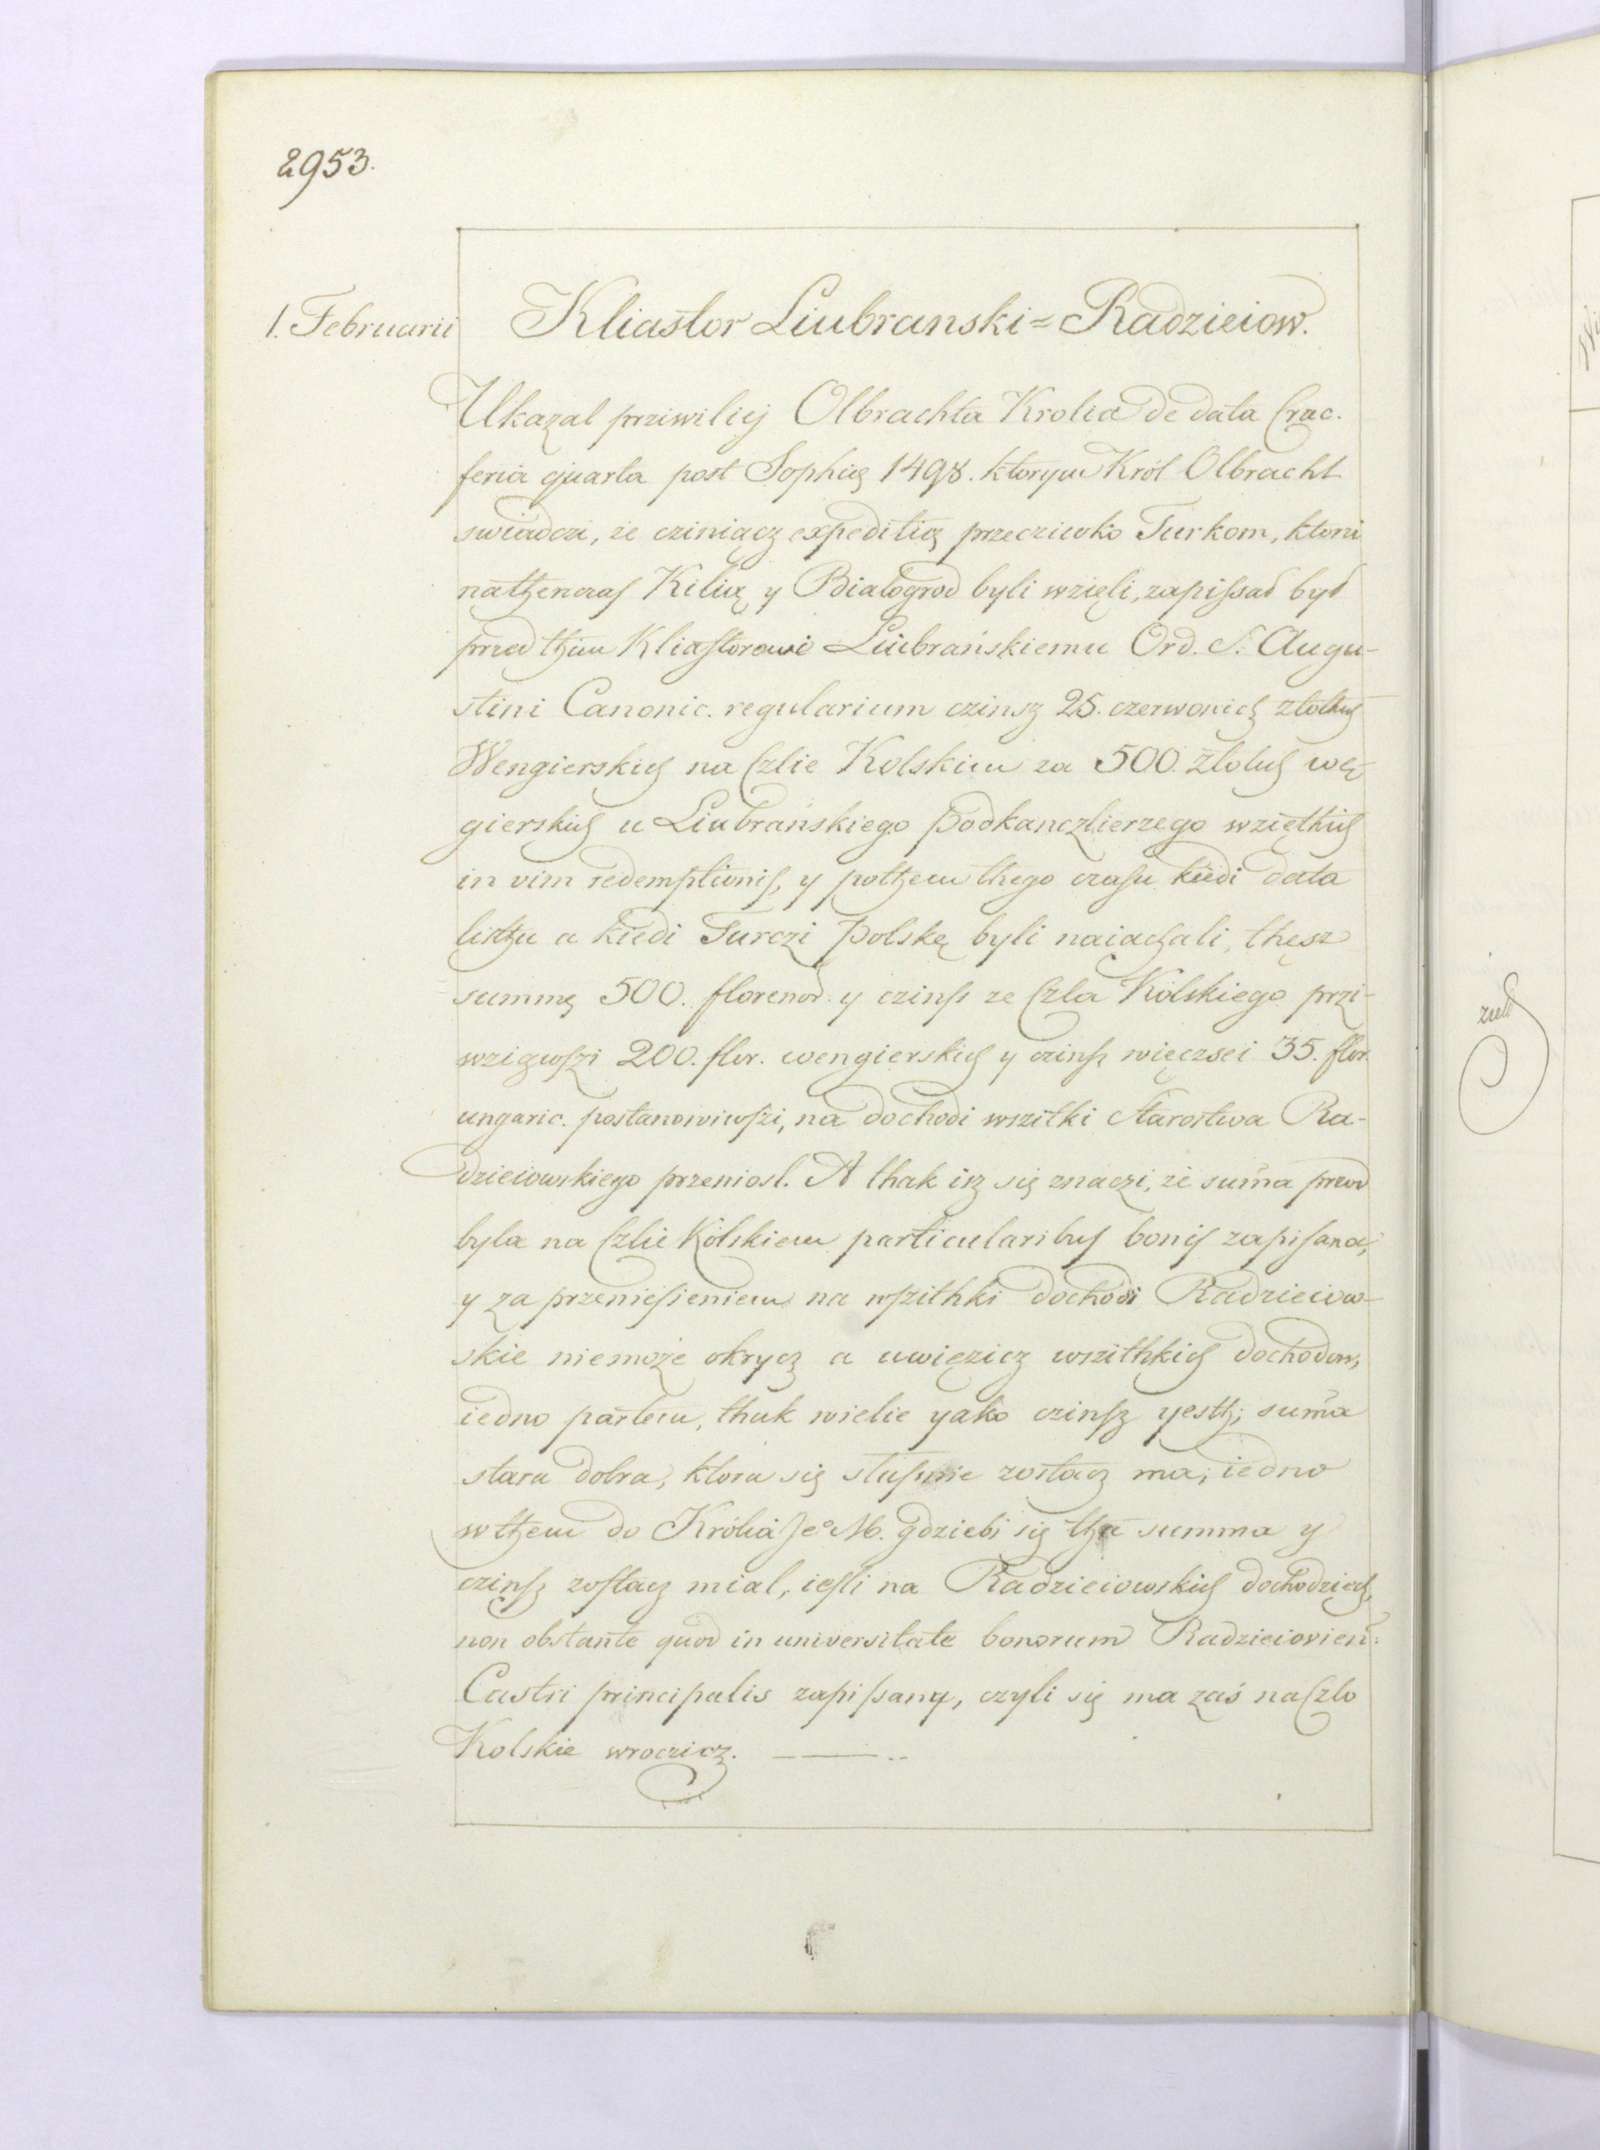 2953.
1. Februarii
Kliastor Liubranski = Radzieiow.
Ukazal prziwiliej Olbrachta Krolia de data Crac.
feria quarta post Sophię 1498. ktorym Król Olbracht
swiadczi, że cziniącz expeditią przecziwko Turkom, ktorzi
nathenczas Kilią y Bialogrod byli wzięli, zapissał był
przed thim Kliastorowi Liubrańskiemu Ord. S. Augu-
stini Canonic. regularium czinsz 25. czerwonich złothich
Wengierskich na Czlie Kolskim za 500. złotich wę-
gierskich u Liubrańskiego Podkanczlierzego wziętich
in vim redemptionis, y pothem thego czasu kiedi data
listhu a kiedi Turczi Polskę byli naiachali, thesz
summę 500. florenor. y czinsz ze Czla Kolskiego przi-
wziąwszi 200. flor. wengierskich y czinsz więczsei 35. flor.
ungaric. postanowiwszi, na dochodi wszitki Starostwa Ra-
dzieiowskiego przeniosl. A thak isz się znaczi, że sum̃a przed
była na Czlie Kolskiem particularibus bonis zapisana,
y za przeniesieniem na wszithki dochodi Radzieiow-
skie niemoże okrycz a uwięzicz wszithkich dochodow,
iedno partem, thak wielie yako czinsz yesth; sum̃a
stara dobra, ktora się słusznie zostacz ma; iedno
w them do Królia Je° M. gdziebi się tha summa y
czinsz zostacz mial, iesli na Radzieiowskich dochodziech,
non obstante quod in universitate bonorum Radzieiovien:
Castri principalis zapissany, czyli się ma zaś na Czlo
Kolskie wroczicz.